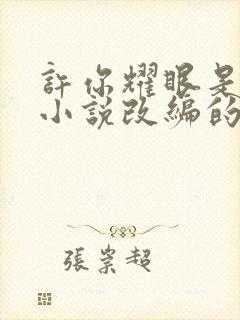 許你耀眼是
小說改編的
張崇超